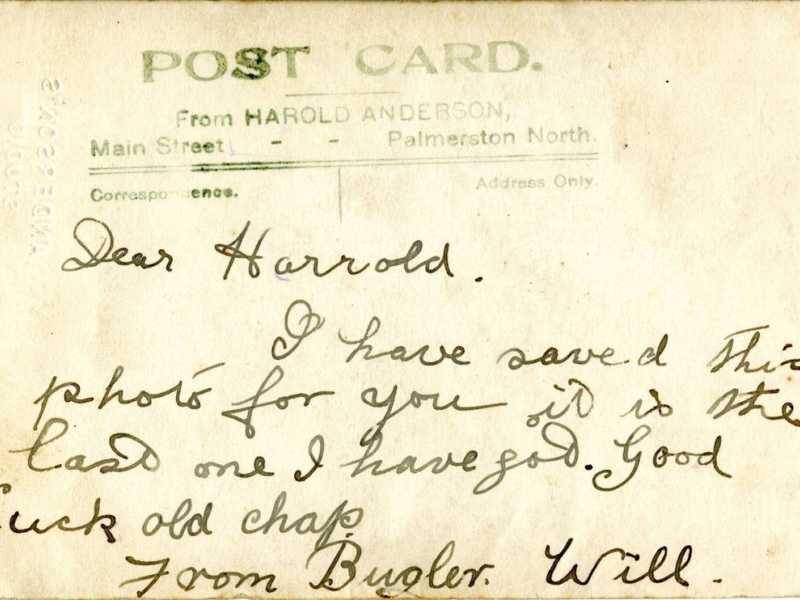 POST CARD.
From HAROLD ANDERSON,
Main Street - - Palmerston North.
Correspondence. Address Only.
ANDERSON'S
STUDIO
Dear Harrold.
I have saved this
photo for you it is the
last one I have got. Good
Luck old chap
From Bugler. Will.